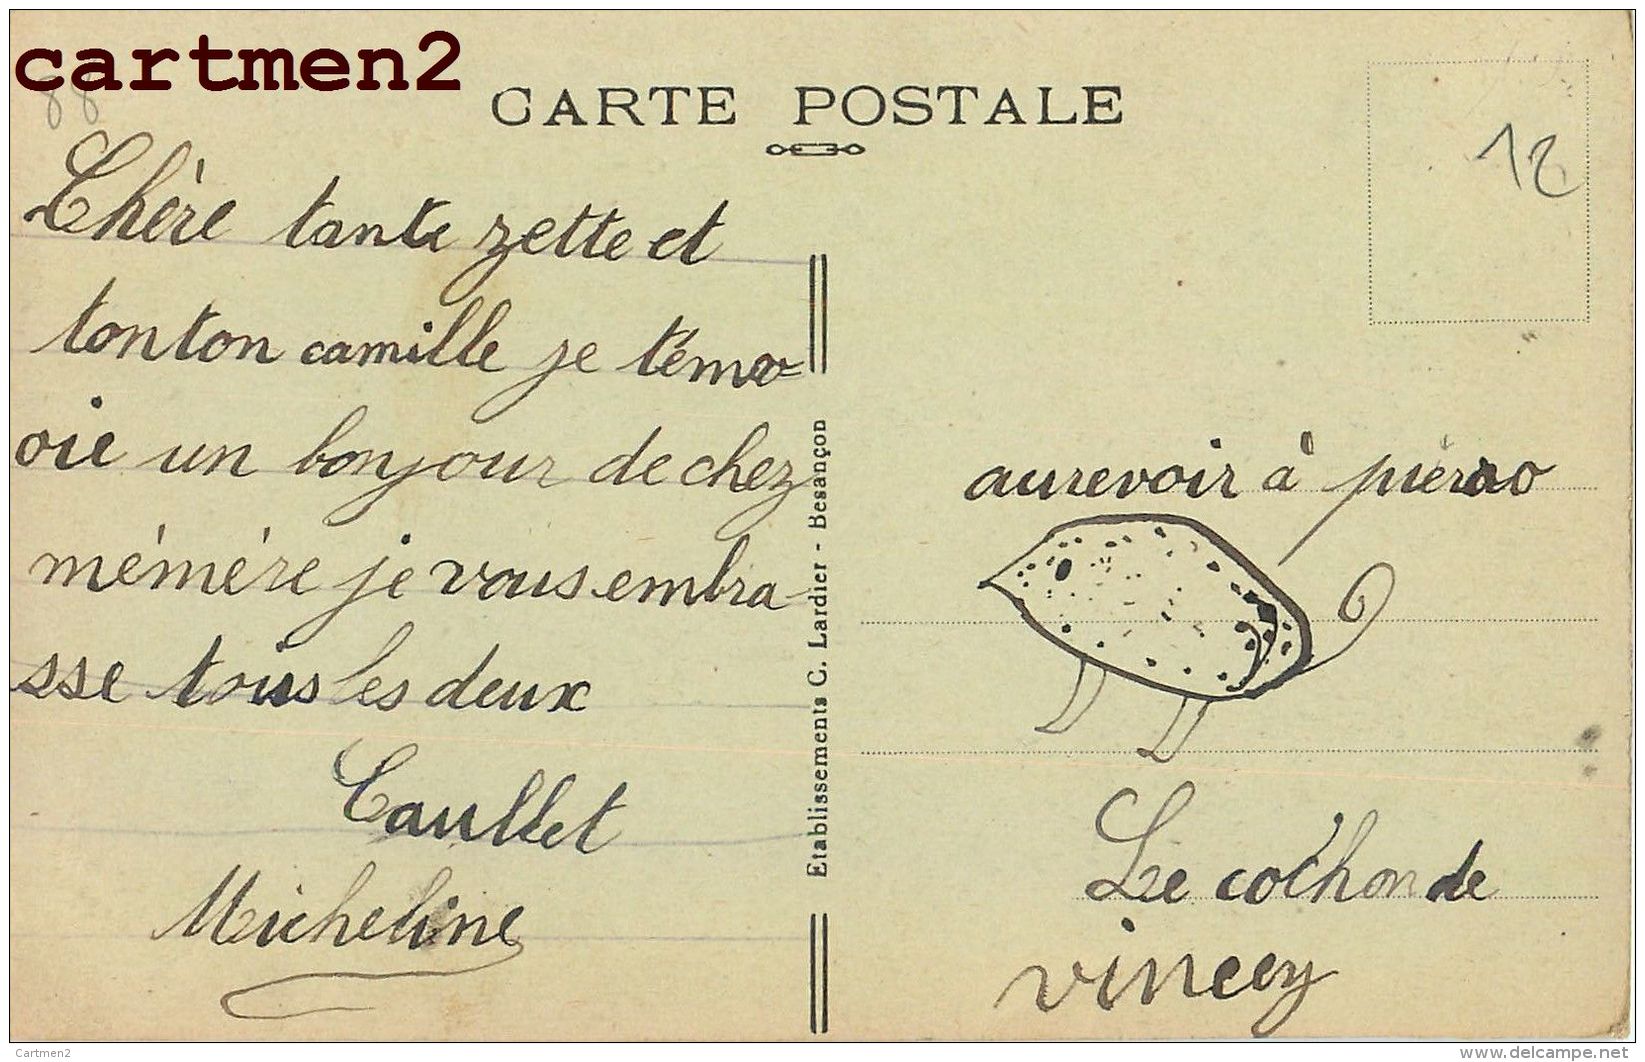 cartmen2
88
CARTE POSTALE
12
Chère tante zette et
tonton camille je t'émo-
oie un bonjour de chez
mémère je vous embra-
sse tous les deux
Caullet
Micheline
Etablissements C. Lardier - Besançon
aurevoir à pierro
Le cochon de
vincey
Cartmen2
http://www.delcampe.net